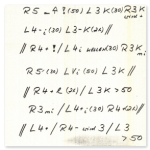 R5 _ A !(50) L3 K(30) R3K
L4-i(30) L3-K(20) //
// R4+!/L4i (30) R3K
mi
R5-(30) LVi (50) L3K //
// R4+L(20)/L3K >50
R3mi/L4+i(30) R4+(20) //
// L4+/R4- 3/L3
>50